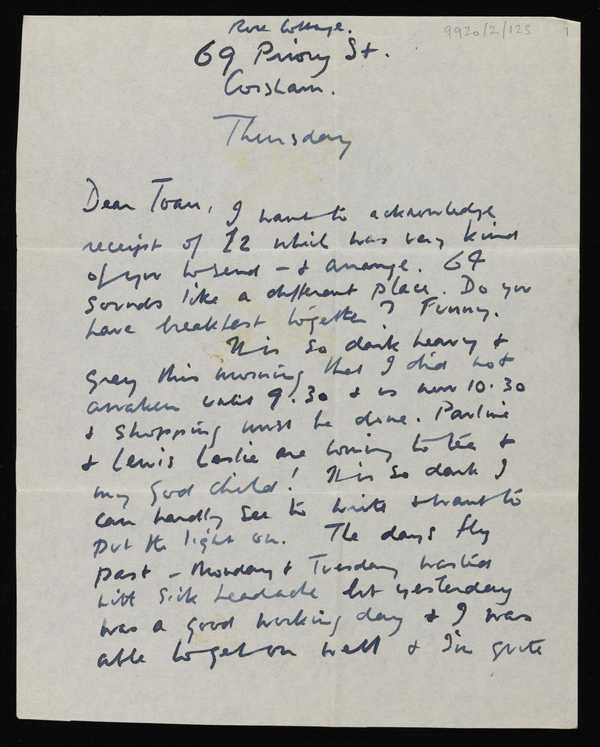 9920/2/125 1
Rose Cottage.
69 Priory St.
Corsham.
Thursday
Dear Joan, I want to acknowledge
receipt of £2 which was very kind
of you to send - & arrange. 64
sounds like a different place. Do you
have breakfast together? Funny.
It is so dark heavy &
grey this morning that I did not
awaken until 9.30 & is now 10.30
& shopping must be done. Pauline
& Lewis Leslie are coming to tea &
my God child! It is so dark I
can hardly see to write & want to
put the light on. The days fly
past - Monday & Tuesday wasted
with sick headache but yesterday
was a good working day & I was
able to get on well & I'm quite